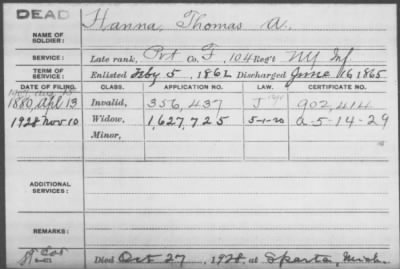 DEAD
Hanna, Thomas A.
NAME OF SOLDIER:
SERVICE: Late rank, Pvt Co. F, 104 Reg't NY Inf
TERM OF SERVICE: Enlisted Feby 5, 1862 Discharged June 16 1865
DATE OF FILING. CLASS. APPLICATION NO. LAW. CERTIFICATE NO.
1880, Apl 13 Invalid, 356,437 J 902,414
1928 Nov 10 Widow, 1,627,725 5-1-20 a-5-14-29
Minor,
ADDITIONAL SERVICES:
REMARKS:
Died Oct 27, 1928, at Sparta, Mich.